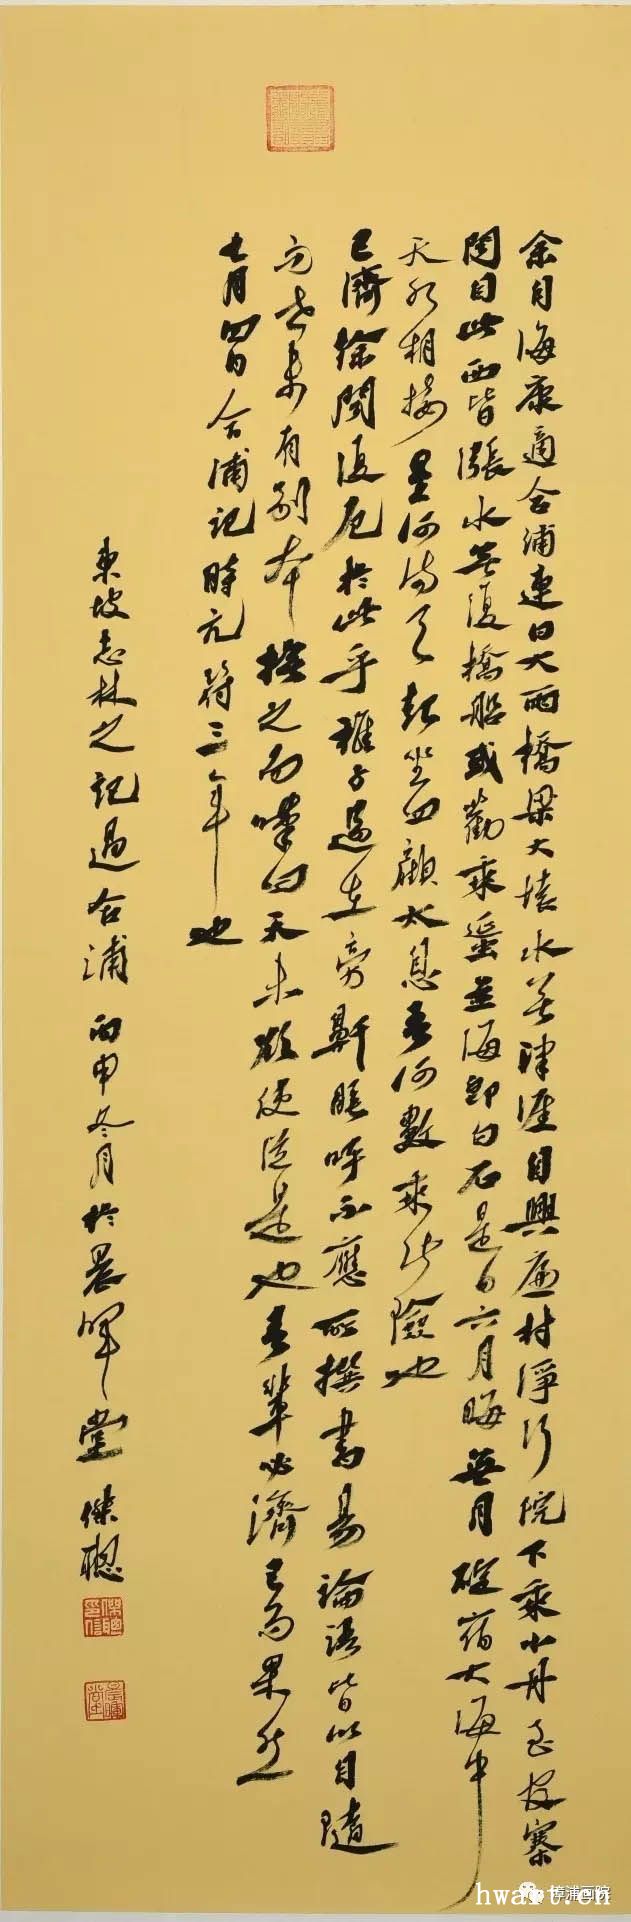 余自海康適合浦連日大雨橋梁大壞水無津涯自興廉村淨行院下乘小舟至官寨
聞自此西皆漲水無復橋船或勸乘蜑並海即白石是日六月晦無月碇宿大海中
天水相接星河滿天起坐四顧太息吾何數乘此險也
已濟徐聞復厄於此乎稚子過在旁鼾睡呼不應所撰書易論語皆以自隨
而世未有別本撫之而嘆曰天未欲使從是也吾輩必濟已而果然
七月四日合浦記時元符三年也
東坡志林之記過合浦 丙申冬月於晨暉堂 傑聰
傑聰印信
漳浦画院
hwart.cn